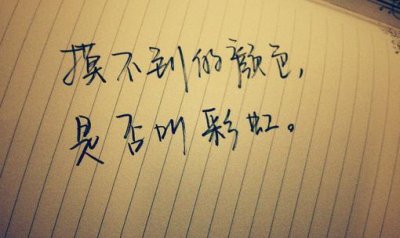 摸不到的颜色,
是否叫彩虹。